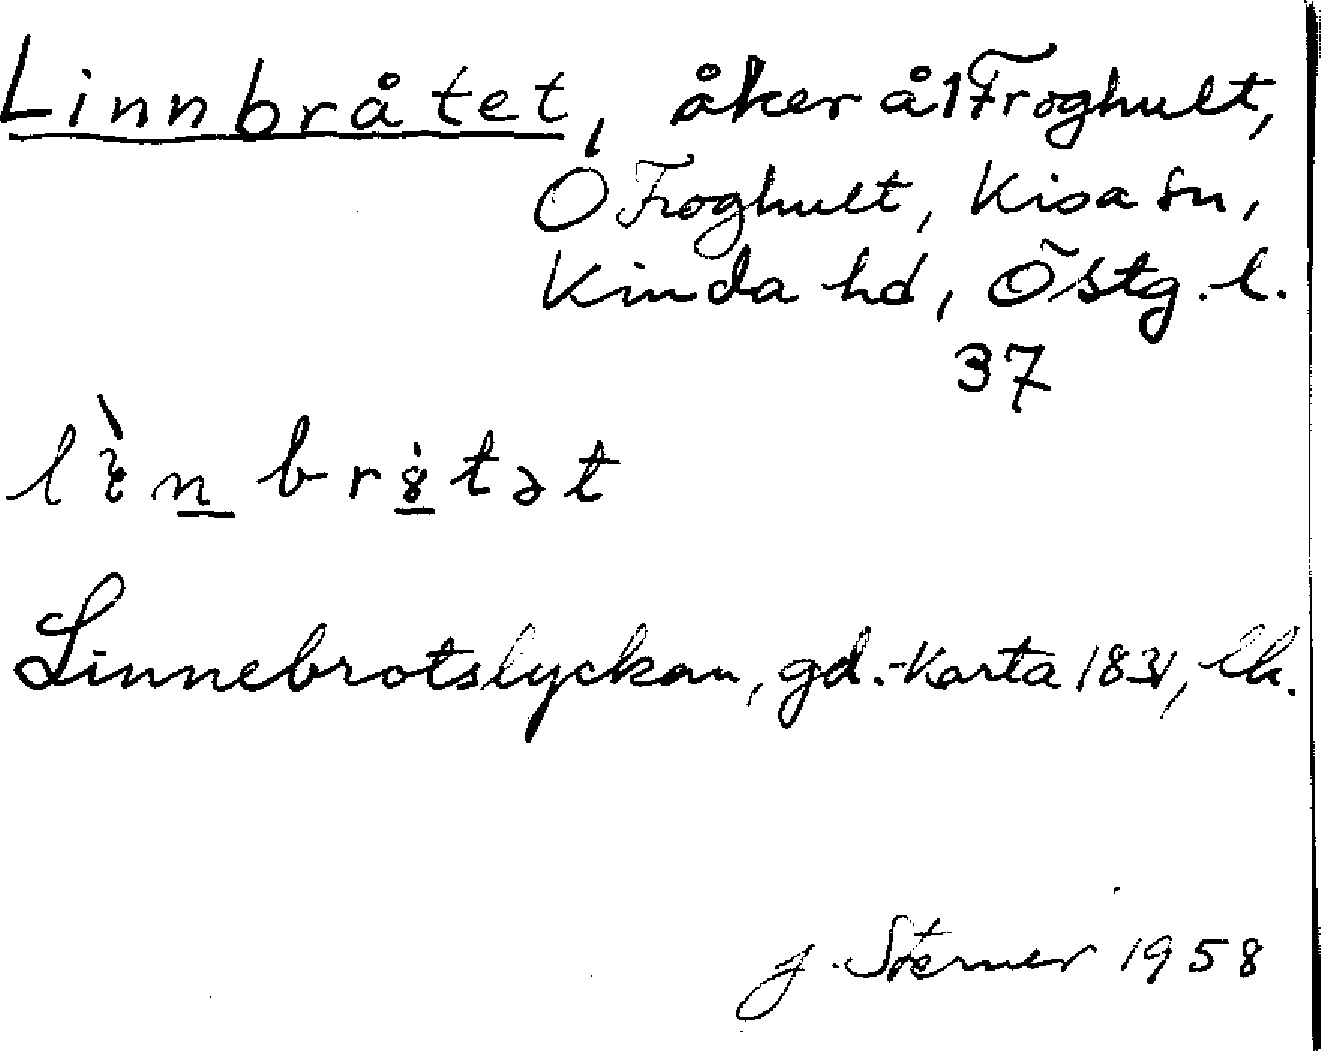 Linnbråtet, åker å 1 Froghult,
Ö Froghult, Kisa sn,
Kinda hd, Östg. l.
37
Linnebrotslyckan, gd.-Karta 1831, lk.
J. Sterner 1958